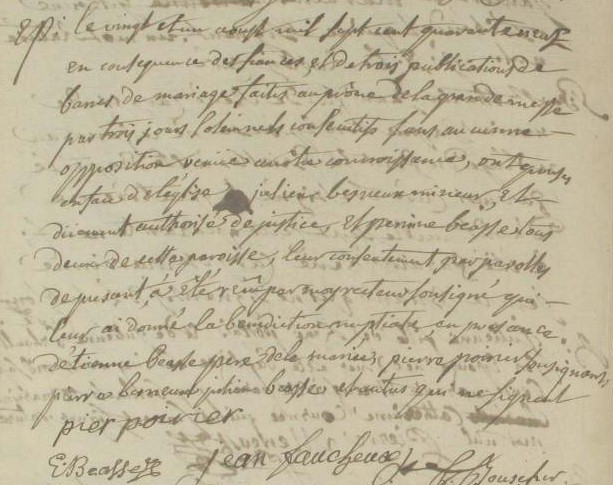 le vingt et un aoust mil sept cent quarante neuf
en consequence des fiances, et de trois publications de
bans de mariage faites au prône de la grande messe
par trois jours solemnels consecutifs sans aucunne
opposition venue a notre connoissance, ont epousé
en face d'eglise julien berneux mineur, et
duement authorisé de justice, et perrine beasse tous
deux de cette paroisse, leur consentement par parolles
de present, a été reçu par moy recteur soussigné qui
leur ai donné la benediction nuptiale en presance
d'etienne beasse pere de la mariée, pierre poirier soussignants,
pierre berneux julien beasse et autres qui ne signent
pier poirier
E: Beasse jean faucheux